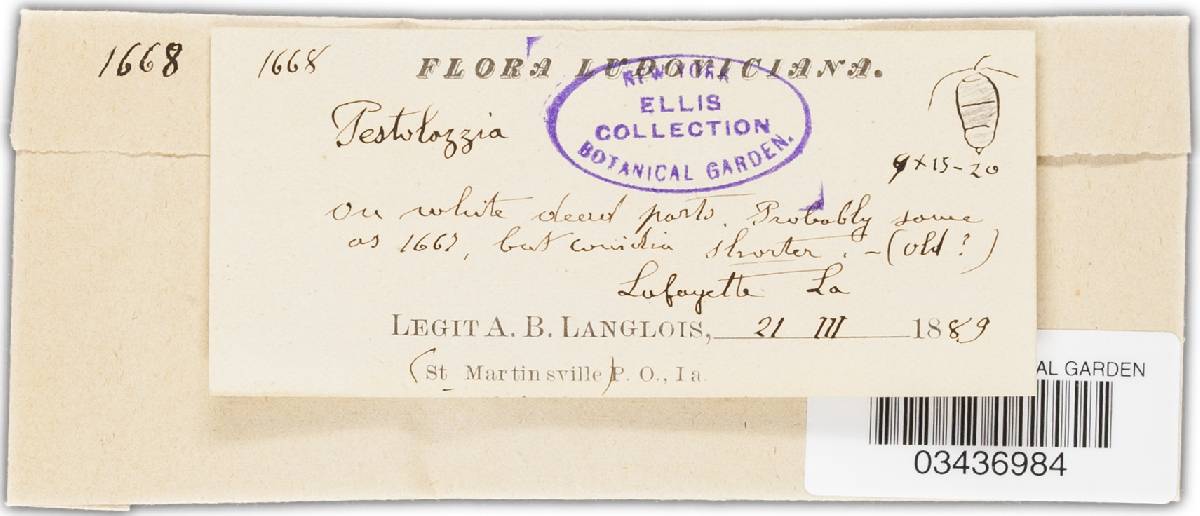 1668
1668 FLORA LUDOVICIANA.
NEW YORK
ELLIS
COLLECTION
BOTANICAL GARDEN.
Pestolozzia
9 x 15-20
on white dead parts. Probably same
as 1667, but conidia shorter. - (old?)
Lafayette La
LEGIT A. B. LANGLOIS, 21 III 1889
(St Martinsville) P. O., La.
AL GARDEN
03436984